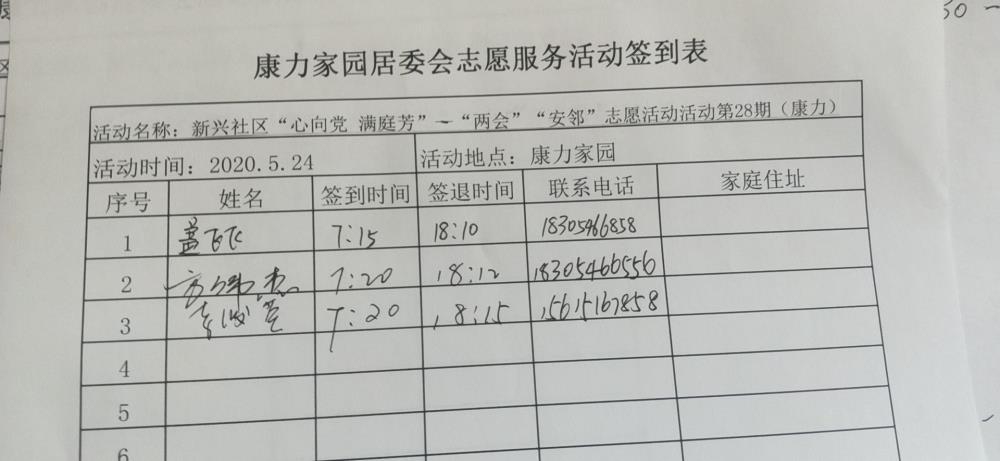 康力家园居委会志愿服务活动签到表
活动名称：新兴社区“心向党 满庭芳”—“两会”“安邻”志愿活动活动第28期（康力）
活动时间：2020.5.24 活动地点：康力家园
序号 姓名 签到时间 签退时间 联系电话 家庭住址
1 盖飞飞 7:15 18:10 18305466858
2 7:20 18:12 18305466556
3 7:20 18:15 15615167858
4
5
6
50